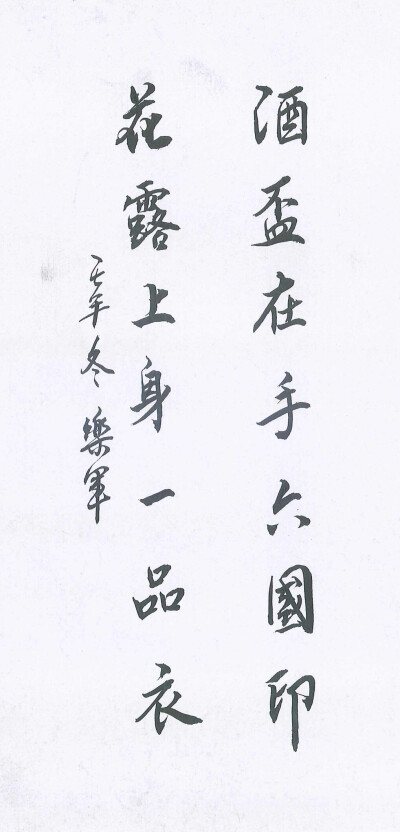 酒盃在手六國印
花露上身一品衣
一七年冬樂軍